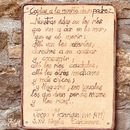 Coplas a la muerte de su padre
Nuestras vidas son los ríos
que van a dar en la mar,
que es el morir:
allí van los señoríos,
derechos a se acabar
y consumir;
allí los ríos caudales,
allí los otros medianos
y más chicos;
y llegados, son iguales
los que viven por sus manos
y los ricos.